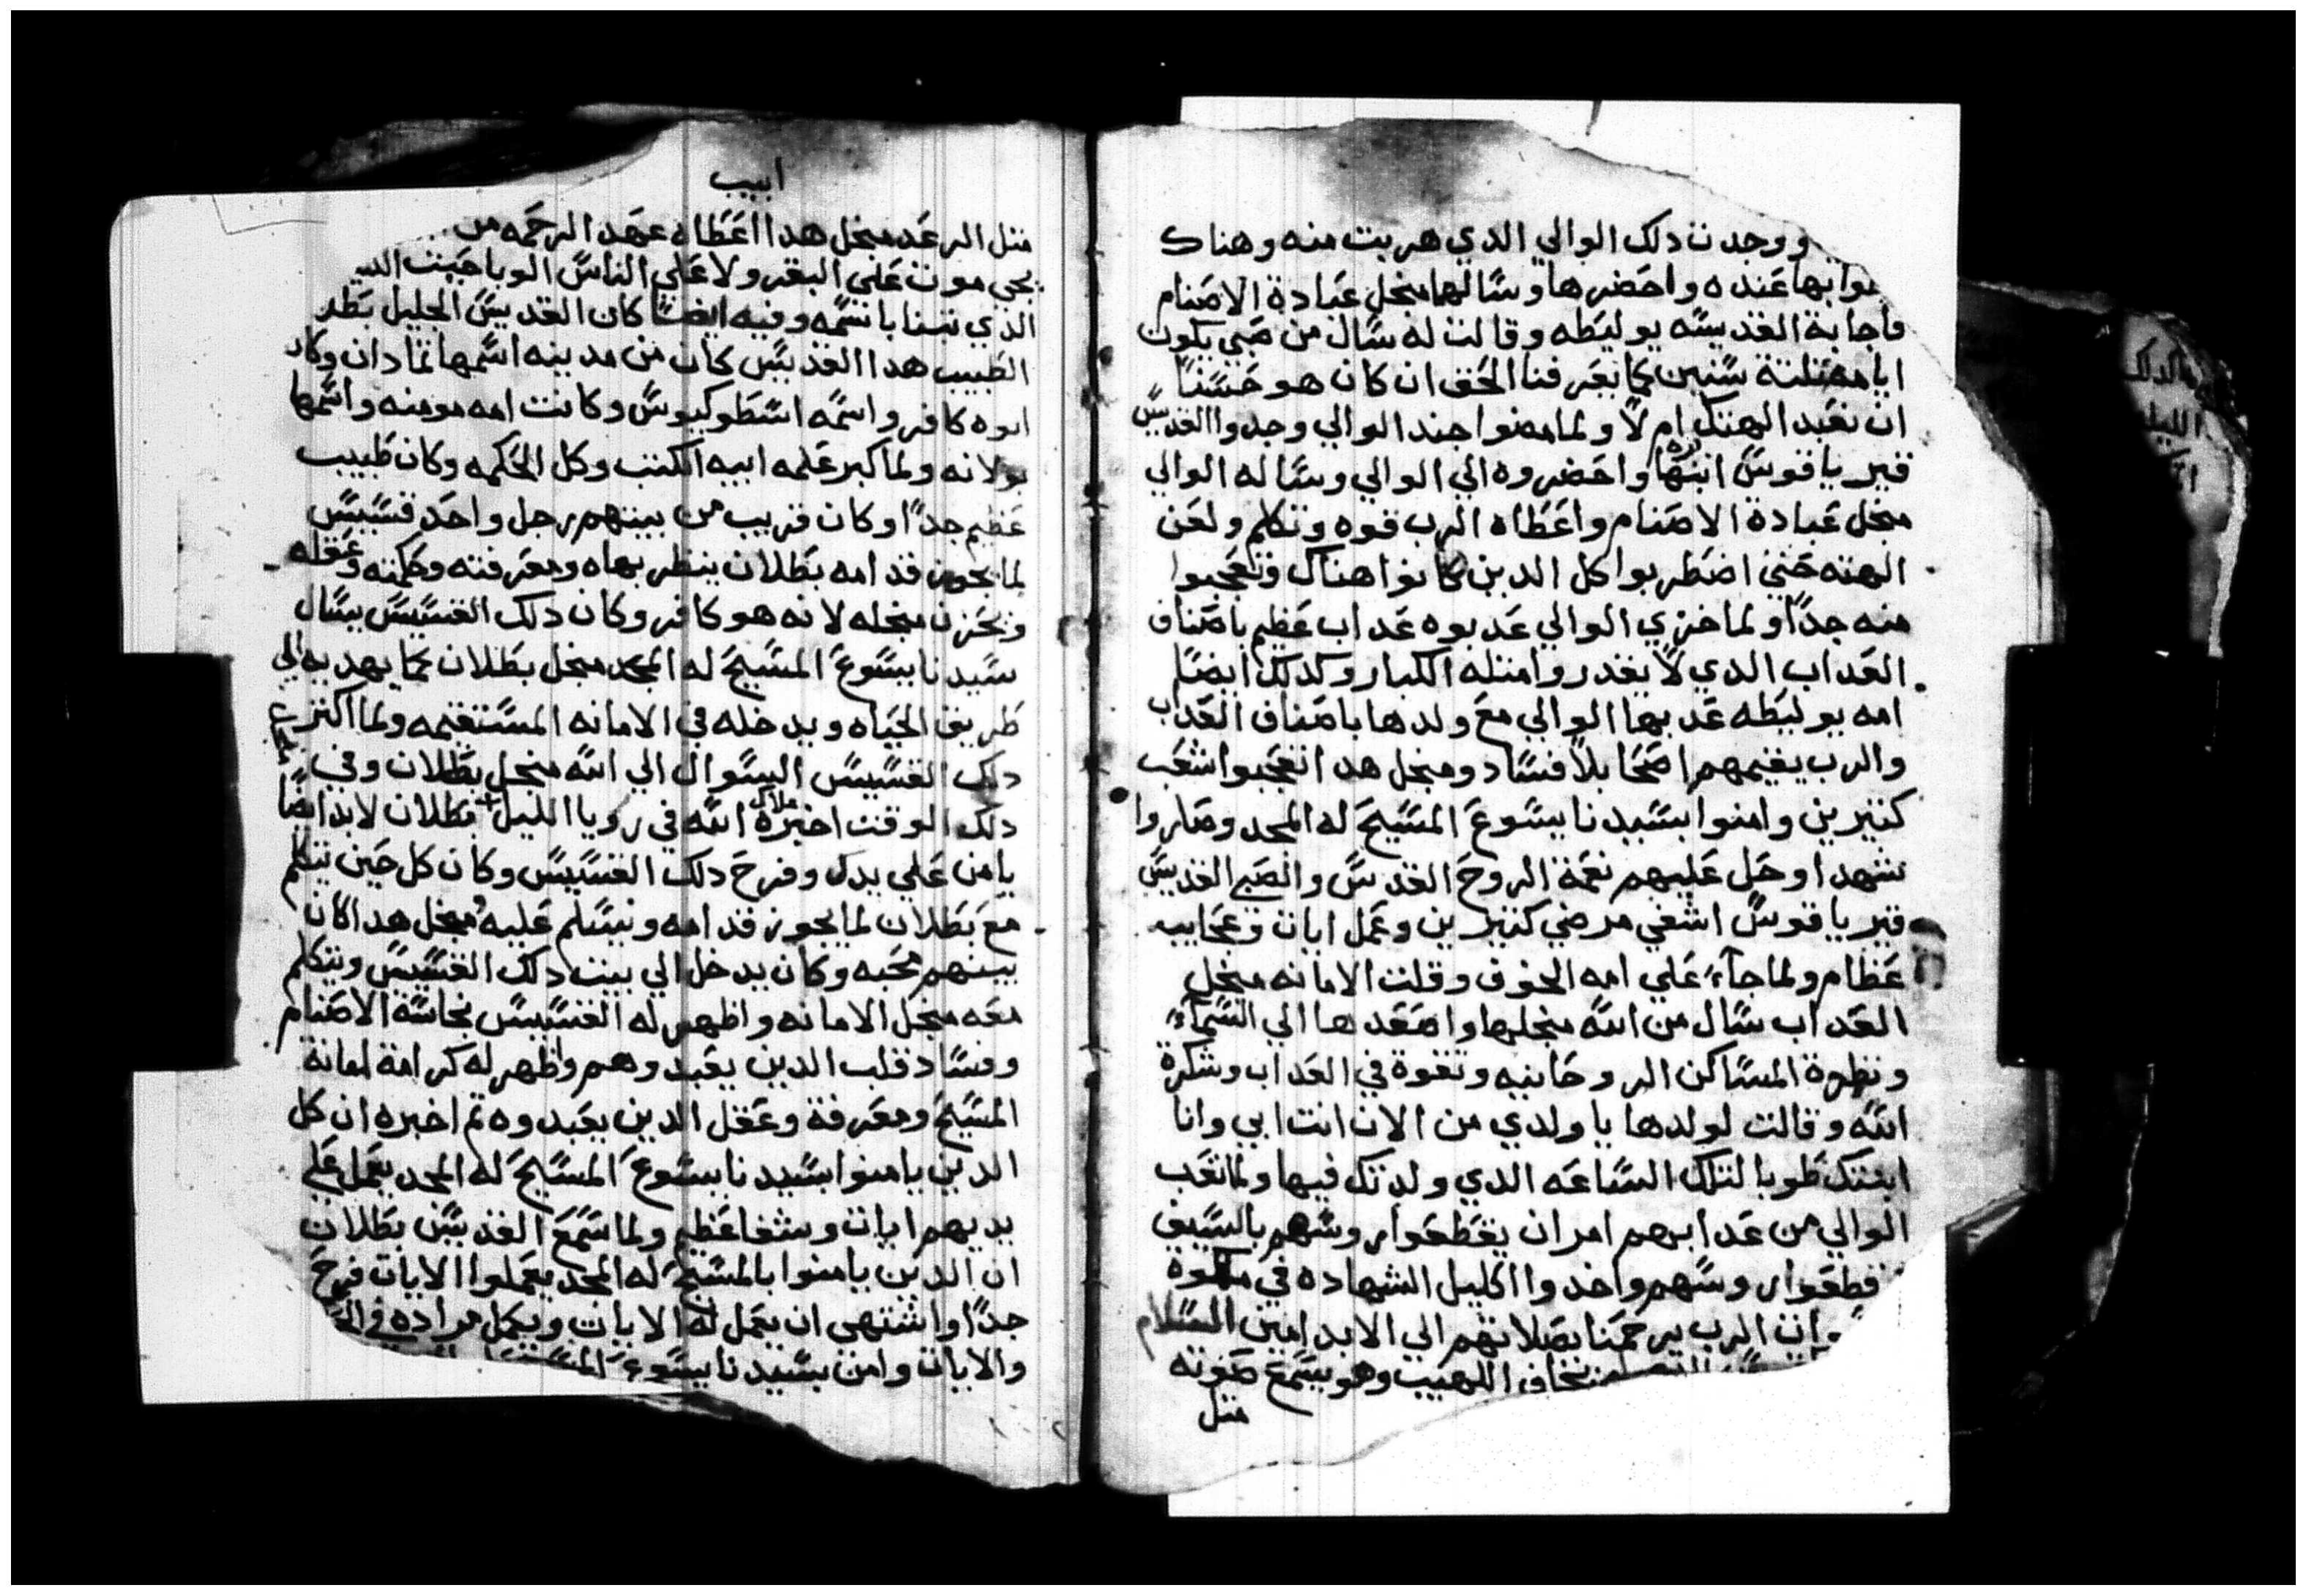 ووجدت دلك الوالي الدي هربت منه وهناك
بها عنده واحضرها وسالها منجل عبادة الاصنام
فاجابة القديسه يوليطه وقالت له سال من صبي يكون
ايامه تلتة سنين كما يعرفنا الحق ان كان هو حسنا
ان نعبد الهتك ام لا ولما مضوا جند الوالي وجدوا القديس
قيرياقوس ابنها واحضروه الي الوالي وساله الوالي
منجل عبادة الاصنام واعطاه الرب قوه وتكلم ولعن
الهته حتي اضطربوا كل الدين كانوا هناك وتعجبوا
منه جدا ولما خزي الوالي عدبوه عداب عظيم باصناف
العداب الدي لا يقدروا متله الكبار وكدلك ايضا
امه يوليطه عدبها الوالي مع ولدها باصناف العداب
والرب يقيمهم اصحا بلا فساد ومنجل هدا اتعجبوا شعب
كتيرين وامنوا بسيدنا يسوع المسيح له المجد وصاروا
شهدا وحل عليهم نعمة الروح القدس والصبي القديس
قيرياقوس اشفي مرضي كتيرين وعمل ايات وعجايب
عظام ولما جآء علي امه الخوف وقلت الامانه منجل
العداب سال من الله منجلها واصعدها الي السمآء
ونظرة المساكن الروحانيه وتقوة في العداب وشكرة
الله وقالت لولدها يا ولدي من الان انت ابي وانا
ابنتك طوبا لتلك الساعه الدي ولدتك فيها ولما تعب
الوالي من عدابهم امر ان يقطعوا روسهم بالسيف
فقطعوا روسهم واخدوا اكليل الشهاده في ملكوة
الرب يرحمنا بصلاتهم الي الابد امين السلام
يخاف اللهيب وهو يسمع صوته
متل
ابيب
متل الرعد منجل هدا اعطاه عهد الرحمه من
يجي موت علي البقر ولا علي الناس الوبا حيت
الدي تبنا باسمه وفيه ايضا كان القديس الجليل بطلان
الطبيب هدا القديس كان من مدينه اسمها تمادان وكان
ابوه كافر واسمه اسطوكيوس وكانت امه مومنه واسمها
بولانه ولما كبر علمه ابيه الكتب وكل الحكمه وكان طبيب
عظيم جدا وكان قريب من بيتهم رجل واحد قسيس
لما يجوز قدامه بطلان ينظر بهاه ومعرفته وحكمته وعقله
ويحزن منجله لانه هو كافر وكان دلك القسيس يسال
سيدنا يسوع المسيح له المجد منجل بطلان كما يهديه الي
طريق الحياه ويدخله في الامانه المستقيمه ولما اكتر
دلك القسيس السوال الي الله منجل بطلان وفي
دلك الوقت اخبره ملاك الله في رويا الليل بطلان لابد ايضا
يامن علي يدك وفرح دلك القسيس وكان كل حين يتكلم
مع بطلان لما يجوز قدامه ويسلم عليه ومنجل هدا كان
بينهم محبه وكان يدخل الي بيت دلك القسيس ويتكلم
معه منجل الامانه واظهر له القسيس نجاسة الاصنام
وفساد قلب الدين يعبدوهم واظهر له كرامة امانة
المسيح ومعرفة وعقل الدين يعبدوه تم اخبره ان كل
الدين يامنوا بسيدنا يسوع المسيح له المجد يعمل علي
يديهم ايات وشفا عظيم ولما سمع القديس بطلان
ان الدين يامنوا بالمسيح له المجد يعملوا الايات فرح
جدا واشتهي ان يعمل له الايات ويكمل مراده في
والايات وامن بسيدنا يسوع المسيح